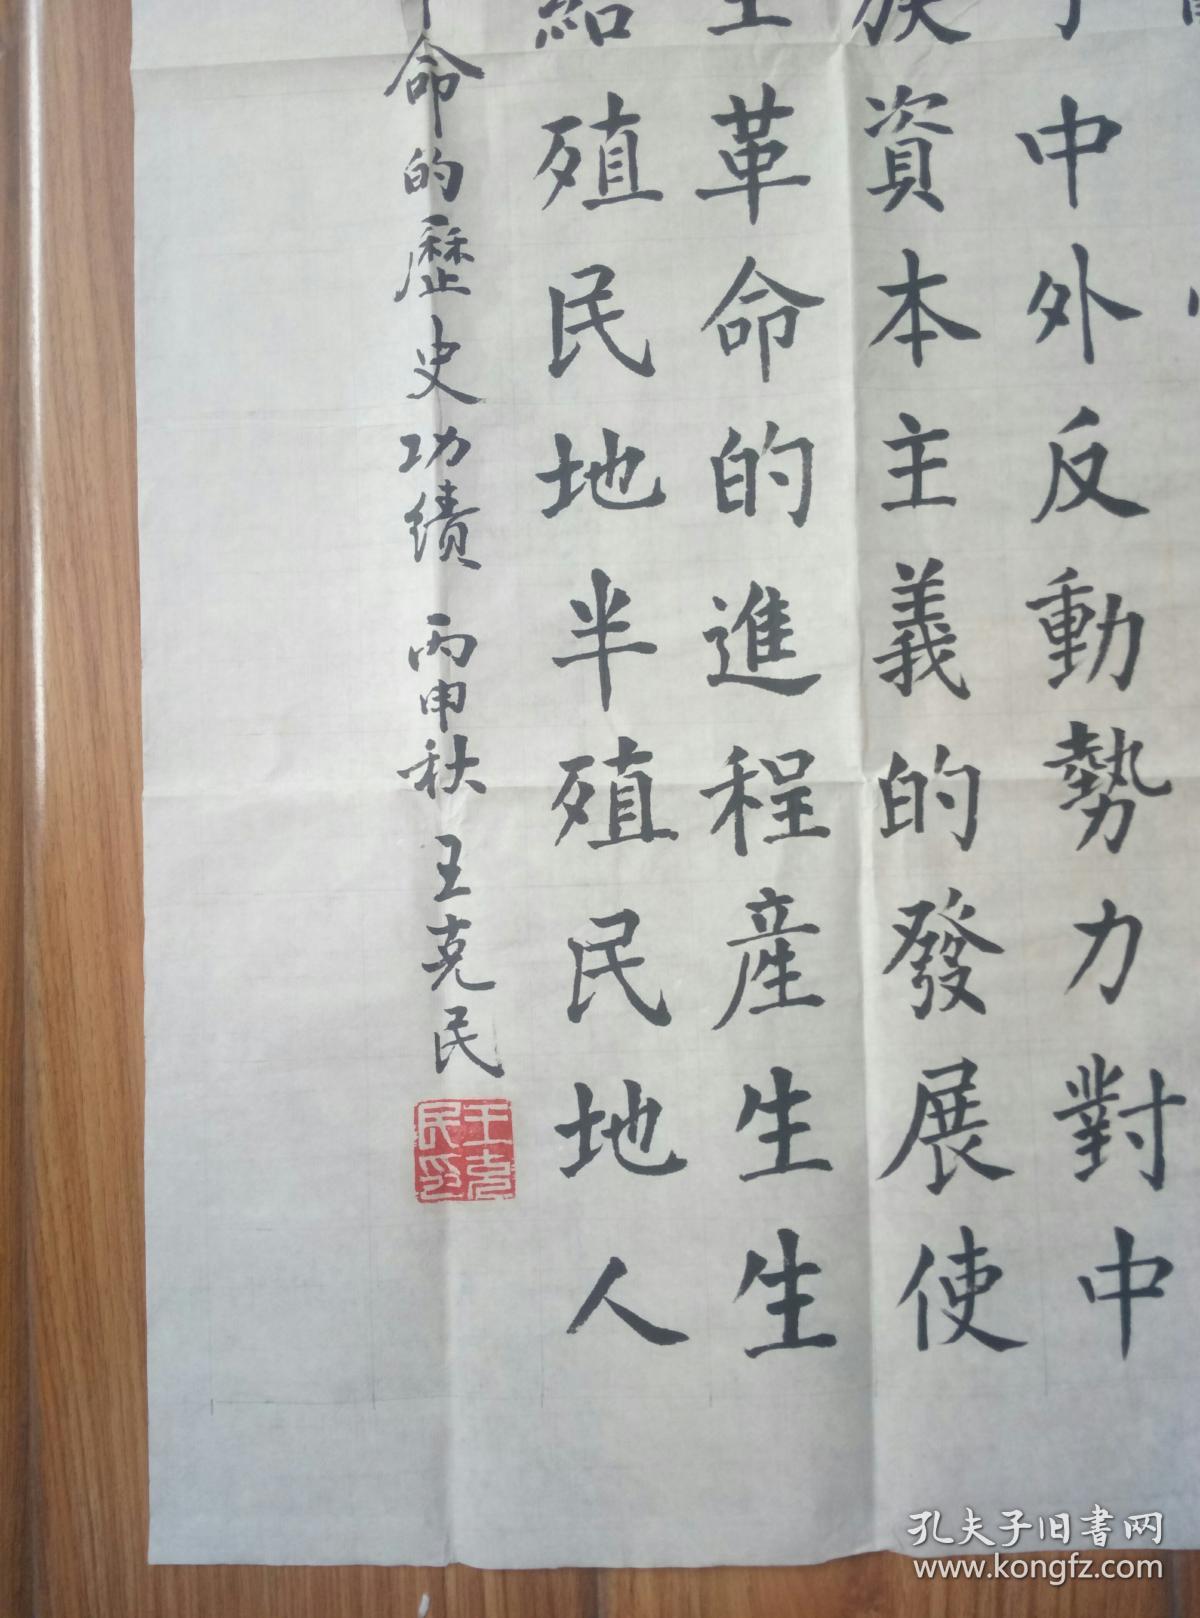 中外反動勢力對中
族資本主義的發展使
主革命的進程産生生
給殖民地半殖民地人
命的歷史功績 丙申秋 王克民
王克民印
孔夫子旧書网
www.kongfz.com